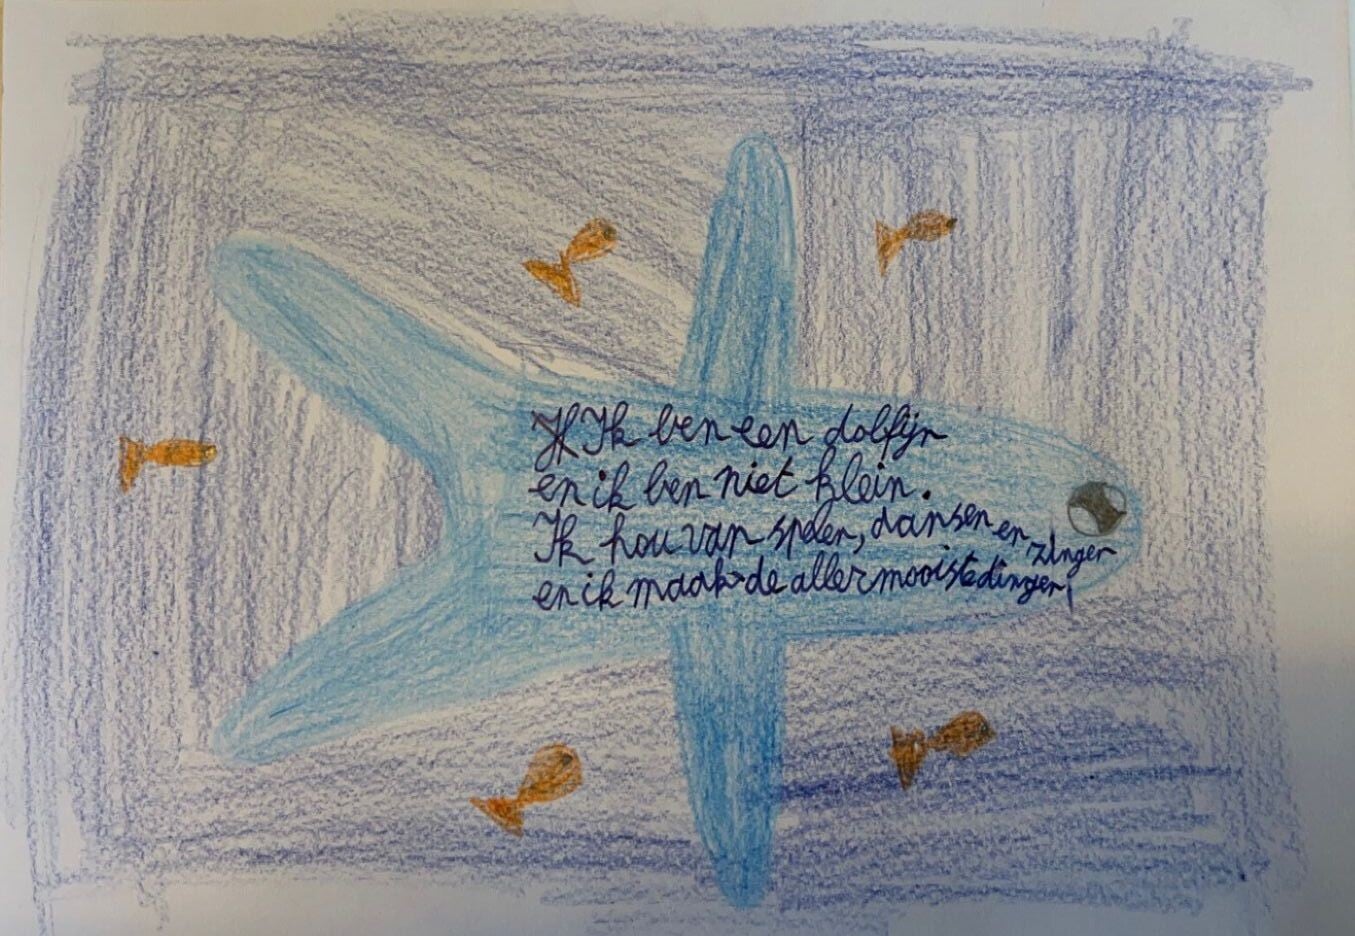 Ik ben een dolfijn
en ik ben niet klein.
Ik hou van spelen, dansen en zingen
en ik maak de allermooiste dingen!